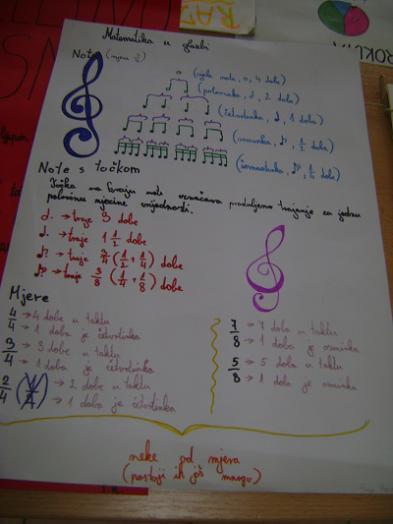 Matematika u glazbi
Note (mjera 4/4)
(cijela nota, o, 4 dobe)
(polovinka, 𝅗𝅥, 2 dobe)
(četvrtinka, ♩, 1 doba)
(osminka, ♪, 1/2 dobe)
(šesnaestinka, 𝅘𝅥𝅯, 1/4 dobe)
Note s točkom
Točka na kraju note označava produljeno trajanje za jednu
polovinu njezine vrijednosti.
𝅗𝅥. → traje 3 dobe
♩. → traje 1 1/2 dobe
♪. → traje 3/4 (1/2 + 1/4) dobe
𝅘𝅥𝅯. → traje 3/8 (1/4 + 1/8) dobe
Mjere
4/4 → 4 dobe u taktu
→ 1 doba je četvrtinka
3/4 → 3 dobe u taktu
→ 1 doba je četvrtinka
2/4 → 2 dobe u taktu
→ 1 doba je četvrtinka
7/8 → 7 doba u taktu
→ 1 doba je osminka
5/8 → 5 doba u taktu
→ 1 doba je osminka
neke od mjera
(postoji ih još mnogo)